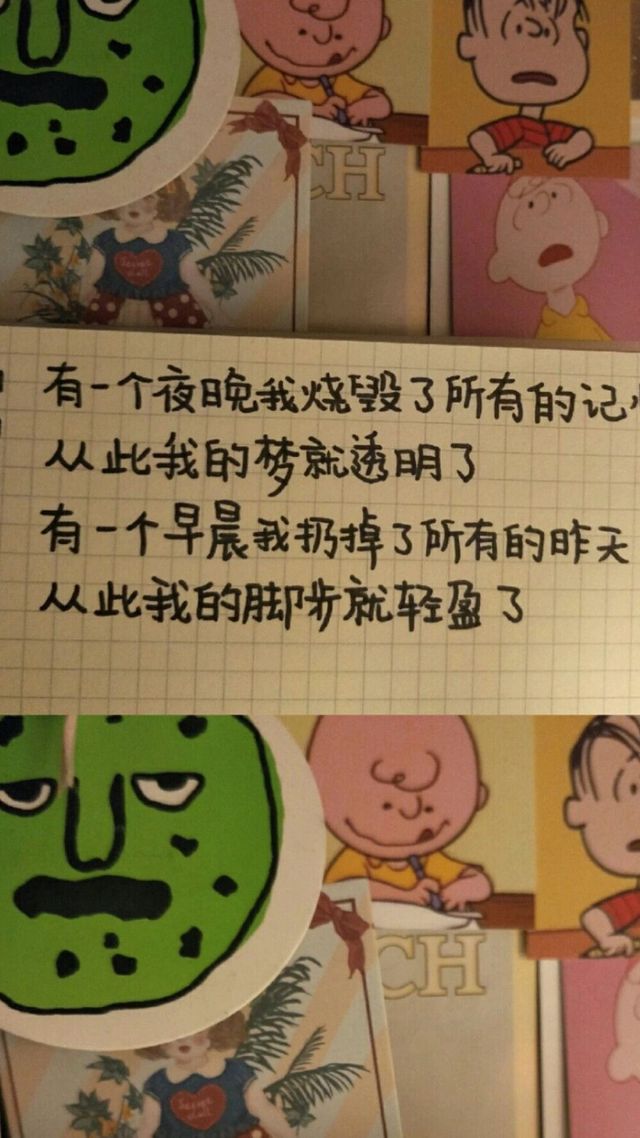 CH
Secret
doll
有一个夜晚我烧毁了所有的记
从此我的梦就透明了
有一个早晨我扔掉了所有的昨天
从此我的脚步就轻盈了
CH
Secret
doll